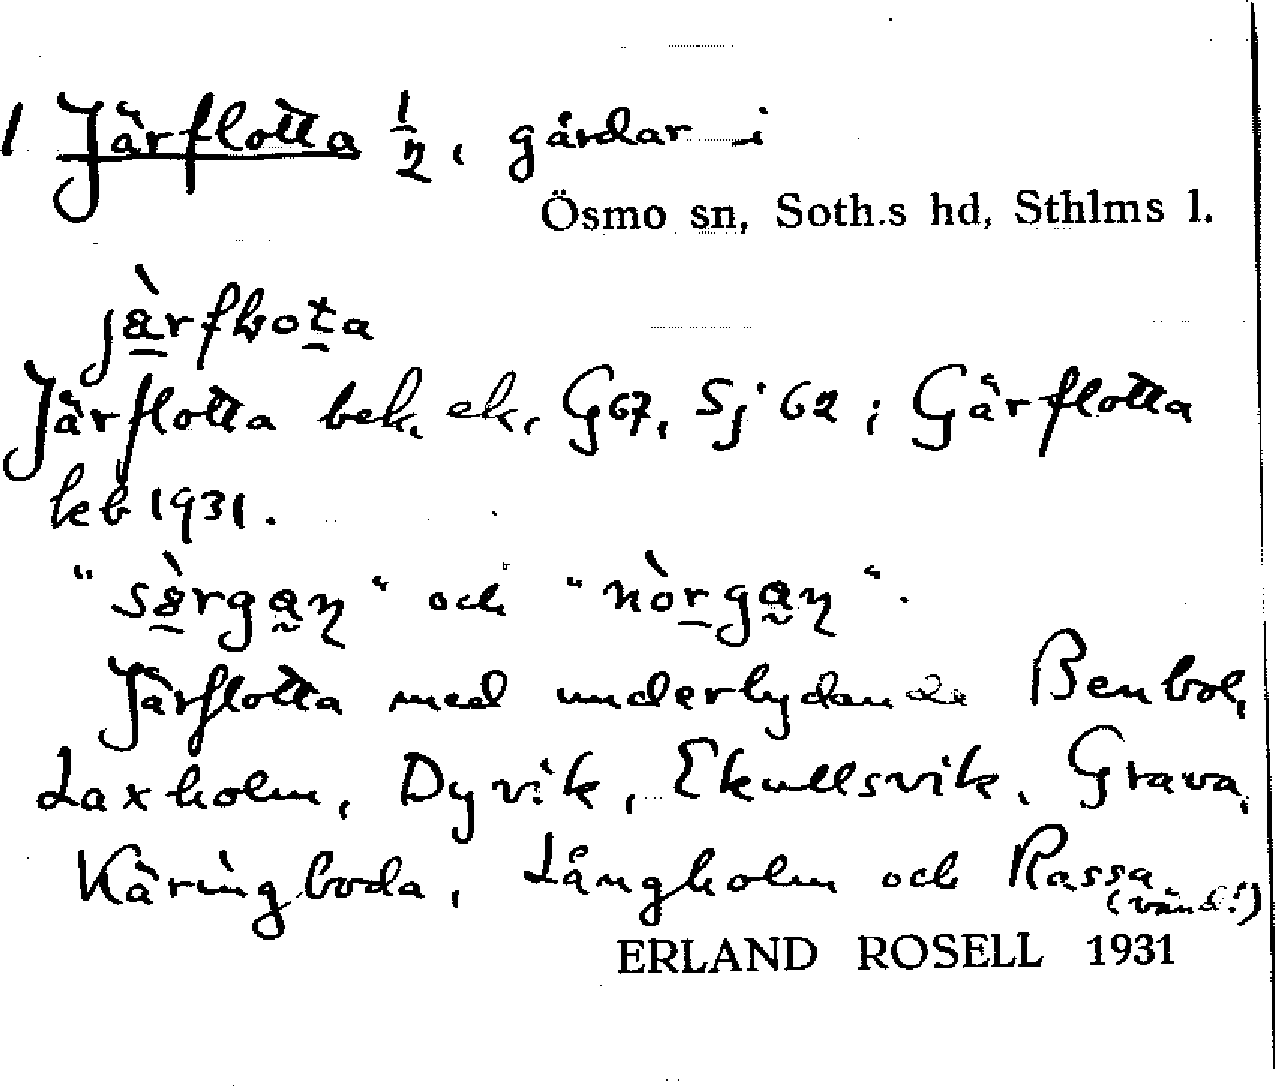 1 Järflotta 1/2, gårdar i
Ösmo sn, Soth.s hd, Sthlms l.
Järflotta bek. ek., G67, Sj 62; Gärflotta
keb 1931.
" " och " ".
Järflotta med underlydande Benbol,
Laxholm, Dyvik, Ekullsvik, Grava,
Käringboda, Långholm och Rassa
(vänd!)
ERLAND ROSELL 1931